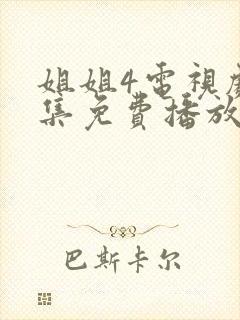 姐姐4電視
集免費播放
巴斯卡尔